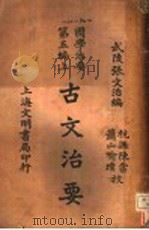 武陵張文治編
杭縣陳棠校
蕭山喻璞
國學治要
第五編
古文治要
上海文明書局印行